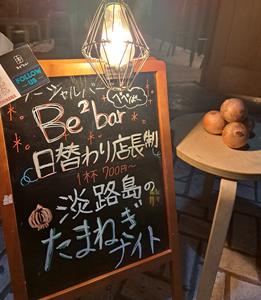 ソーシャルバー
Be²bar
べべバー
日替わり店長制
1杯 700円~
淡路島の
たまねぎ
ナイト
FOLLOW
US